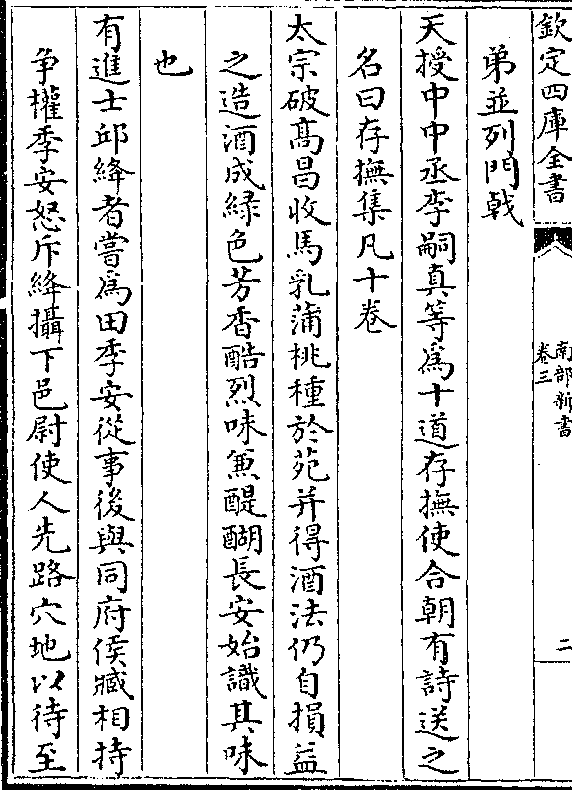 欽定四庫全書
南部新書
卷三
二
弟並列門㦸
天授中中丞李嗣真等為十道存撫使合朝有詩送之
名曰存撫集凡十卷
太宗破髙昌收馬乳蒲桃種於苑并得酒法仍自損益
之造酒成緑色芳香酷烈味兼醍醐長安始識其味
也
有進士邱絳者嘗為田季安從事後與同府侯臧相持
争權季安怒斥絳攝下邑尉使人先路穴地以待至